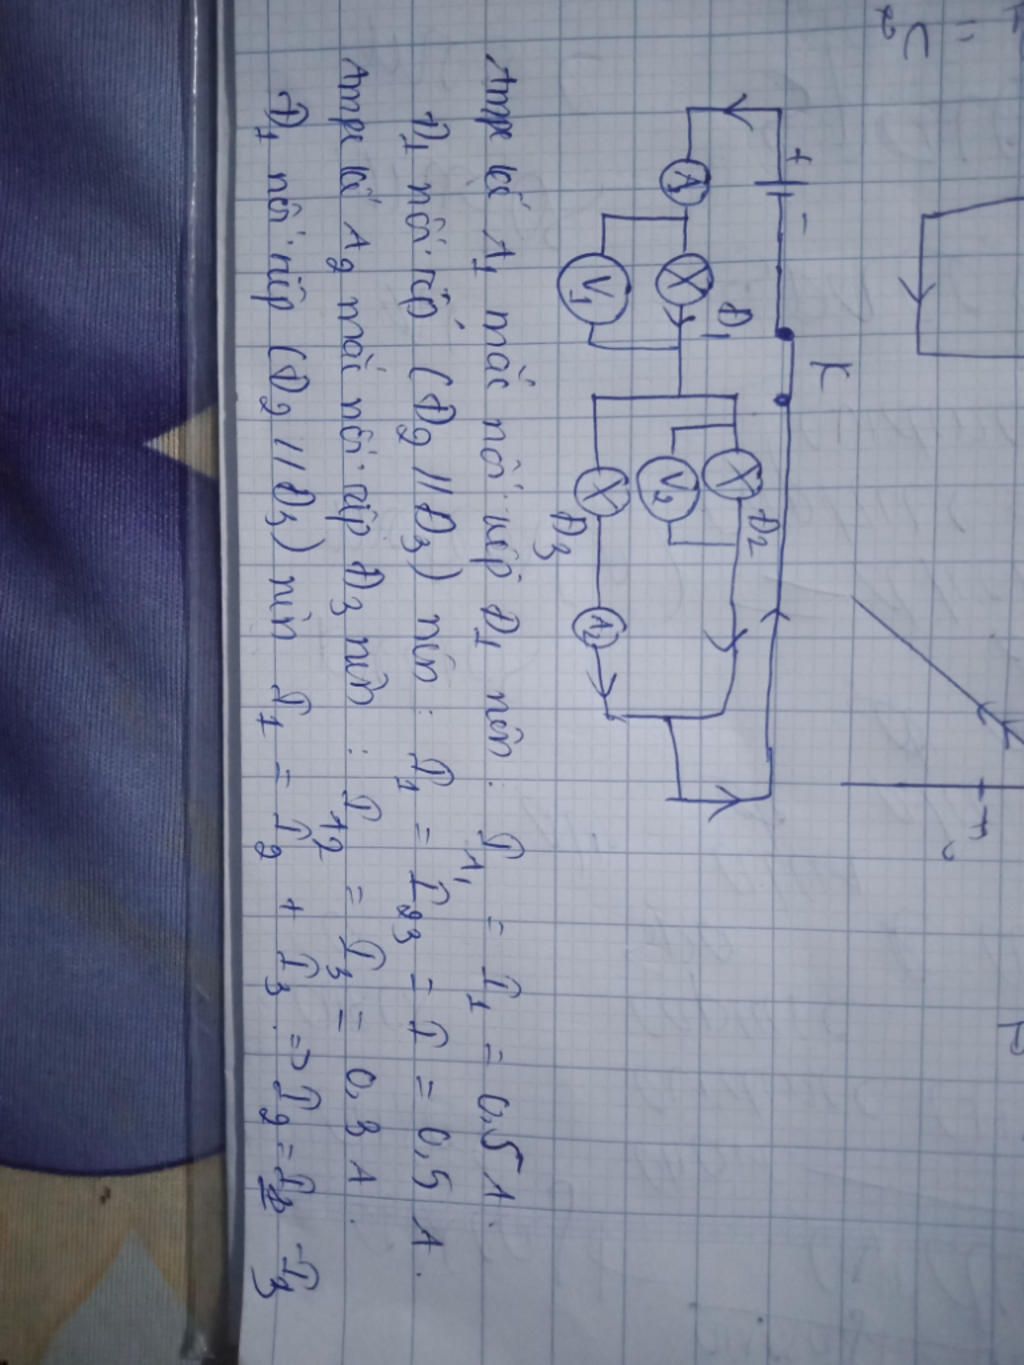 + −
K
A1
Đ1
V1
Đ2
V2
Đ3
A2
Ampe kế A1 mắc nối tiếp Đ1 nên : I_A1 = I1 = 0,5 A.
Đ1 nối tiếp (Đ2 // Đ3) nên : I1 = I23 = I = 0,5 A.
Ampe kế A2 mắc nối tiếp Đ3 nên : I_A2 = I3 = 0,3 A.
Đ1 nối tiếp (Đ2 // Đ3) nên I1 = I2 + I3 => I2 = I1 - I3